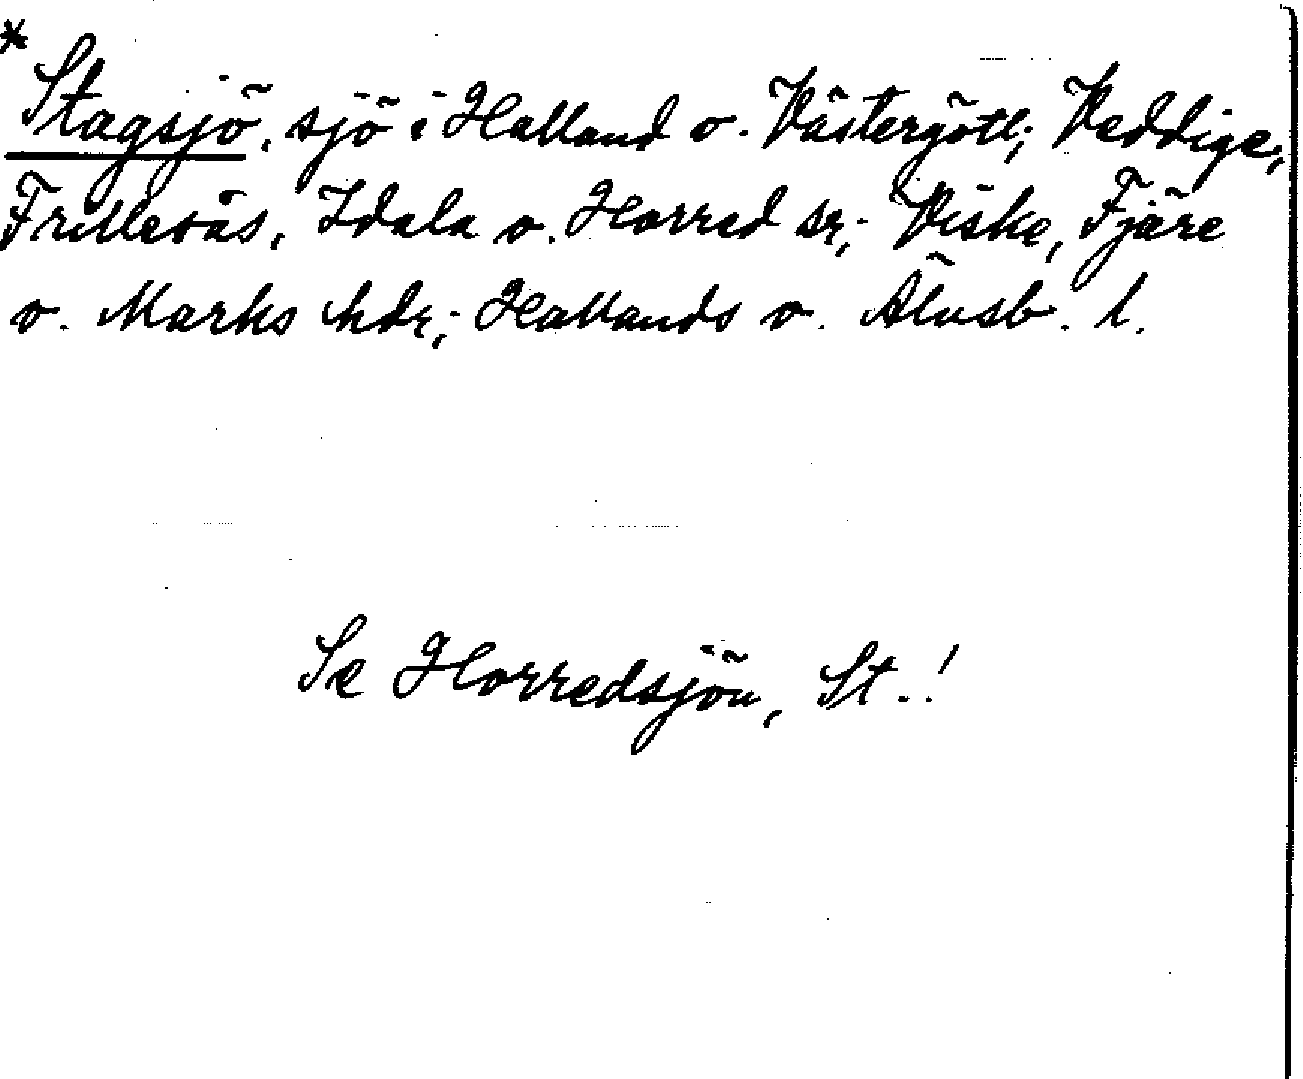 * Stagsjö, sjö i Halland o. Västergötl; Veddige,
Frillesås, Idala o. Horred sr; Viske, Fjäre
o. Marks hdr; Hallands o. Älvsb. l.
Se Horredsjön, St.!